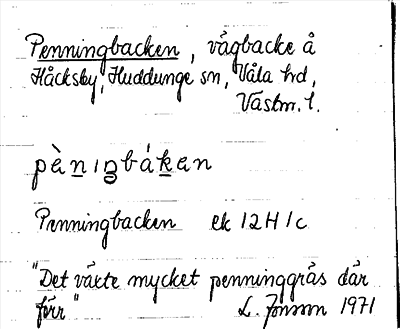 Penningbacken, vägbacke å
Häcksby, Huddunge sn, Våla hd,
Västm. l.
pènıŋbákən
Penningbacken ek 12H 1c
"Det växte mycket penninggräs där
förr" L. Jonson 1971